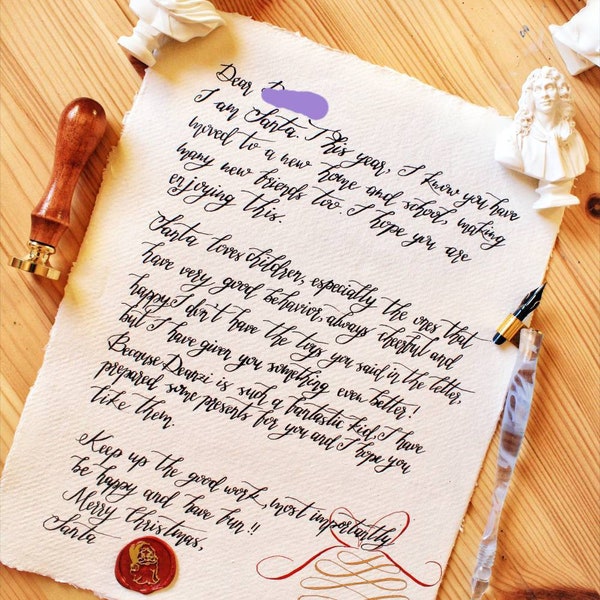 Dear
I am Santa. This year, I know you have
moved to a new home and school, making
many new friends too. I hope you are
enjoying this.
Santa loves children, especially the ones that
have very good behavior, always cheerful and
happy. I don't have the toys you said in the letter,
but I have given you something even better!
Because Deanzi is such a fantastic kid, I have
prepared some presents for you and I hope you
like them.
Keep up the good work, most importantly
be happy and have fun!!
Merry Christmas,
Santa